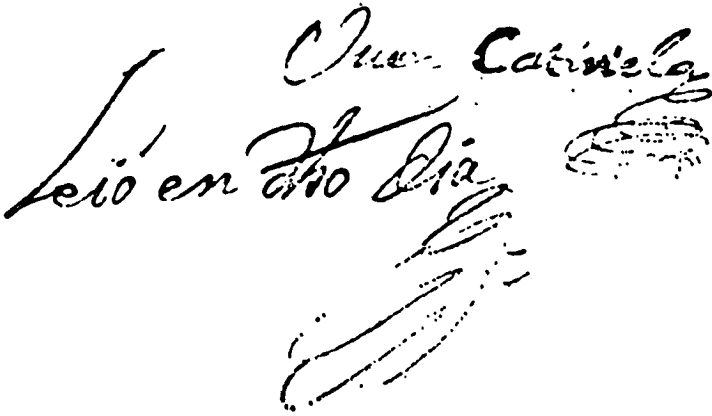 Juan Cativiela
Leió en dho dia